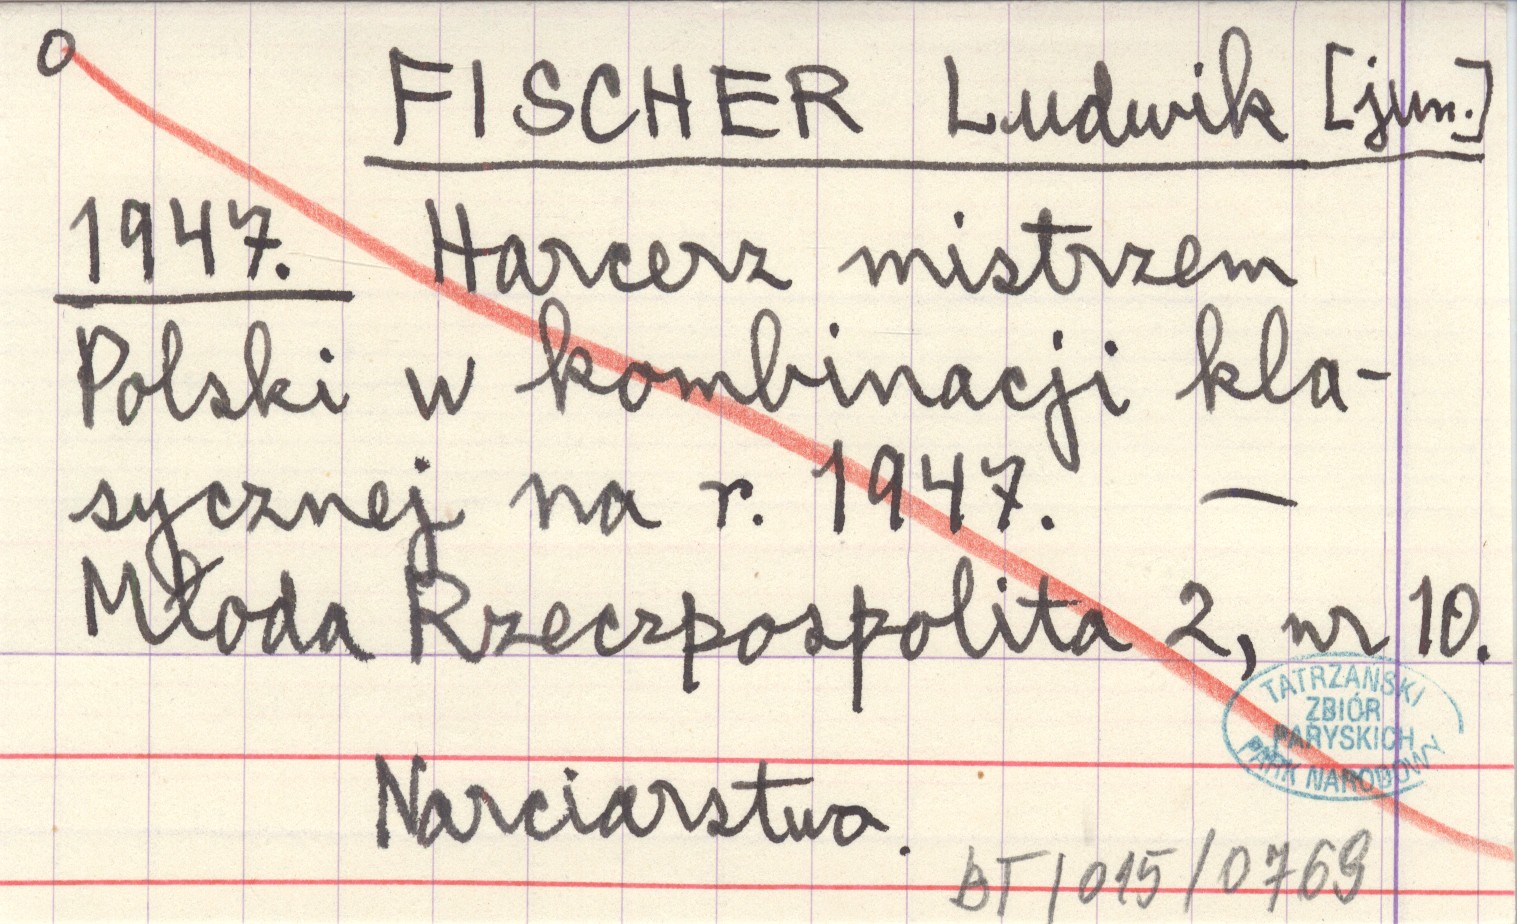 O
FISCHER Ludwik [jun.]
1947. Harcerz mistrzem
Polski w kombinacji kla-
sycznej na r. 1947. —
Młoda Rzeczpospolita 2, nr 10.
TATRZAŃSKI
ZBIÓR
PARYSKICH
PARK NARODOWY
Narciarstwo.
BT/015/0769